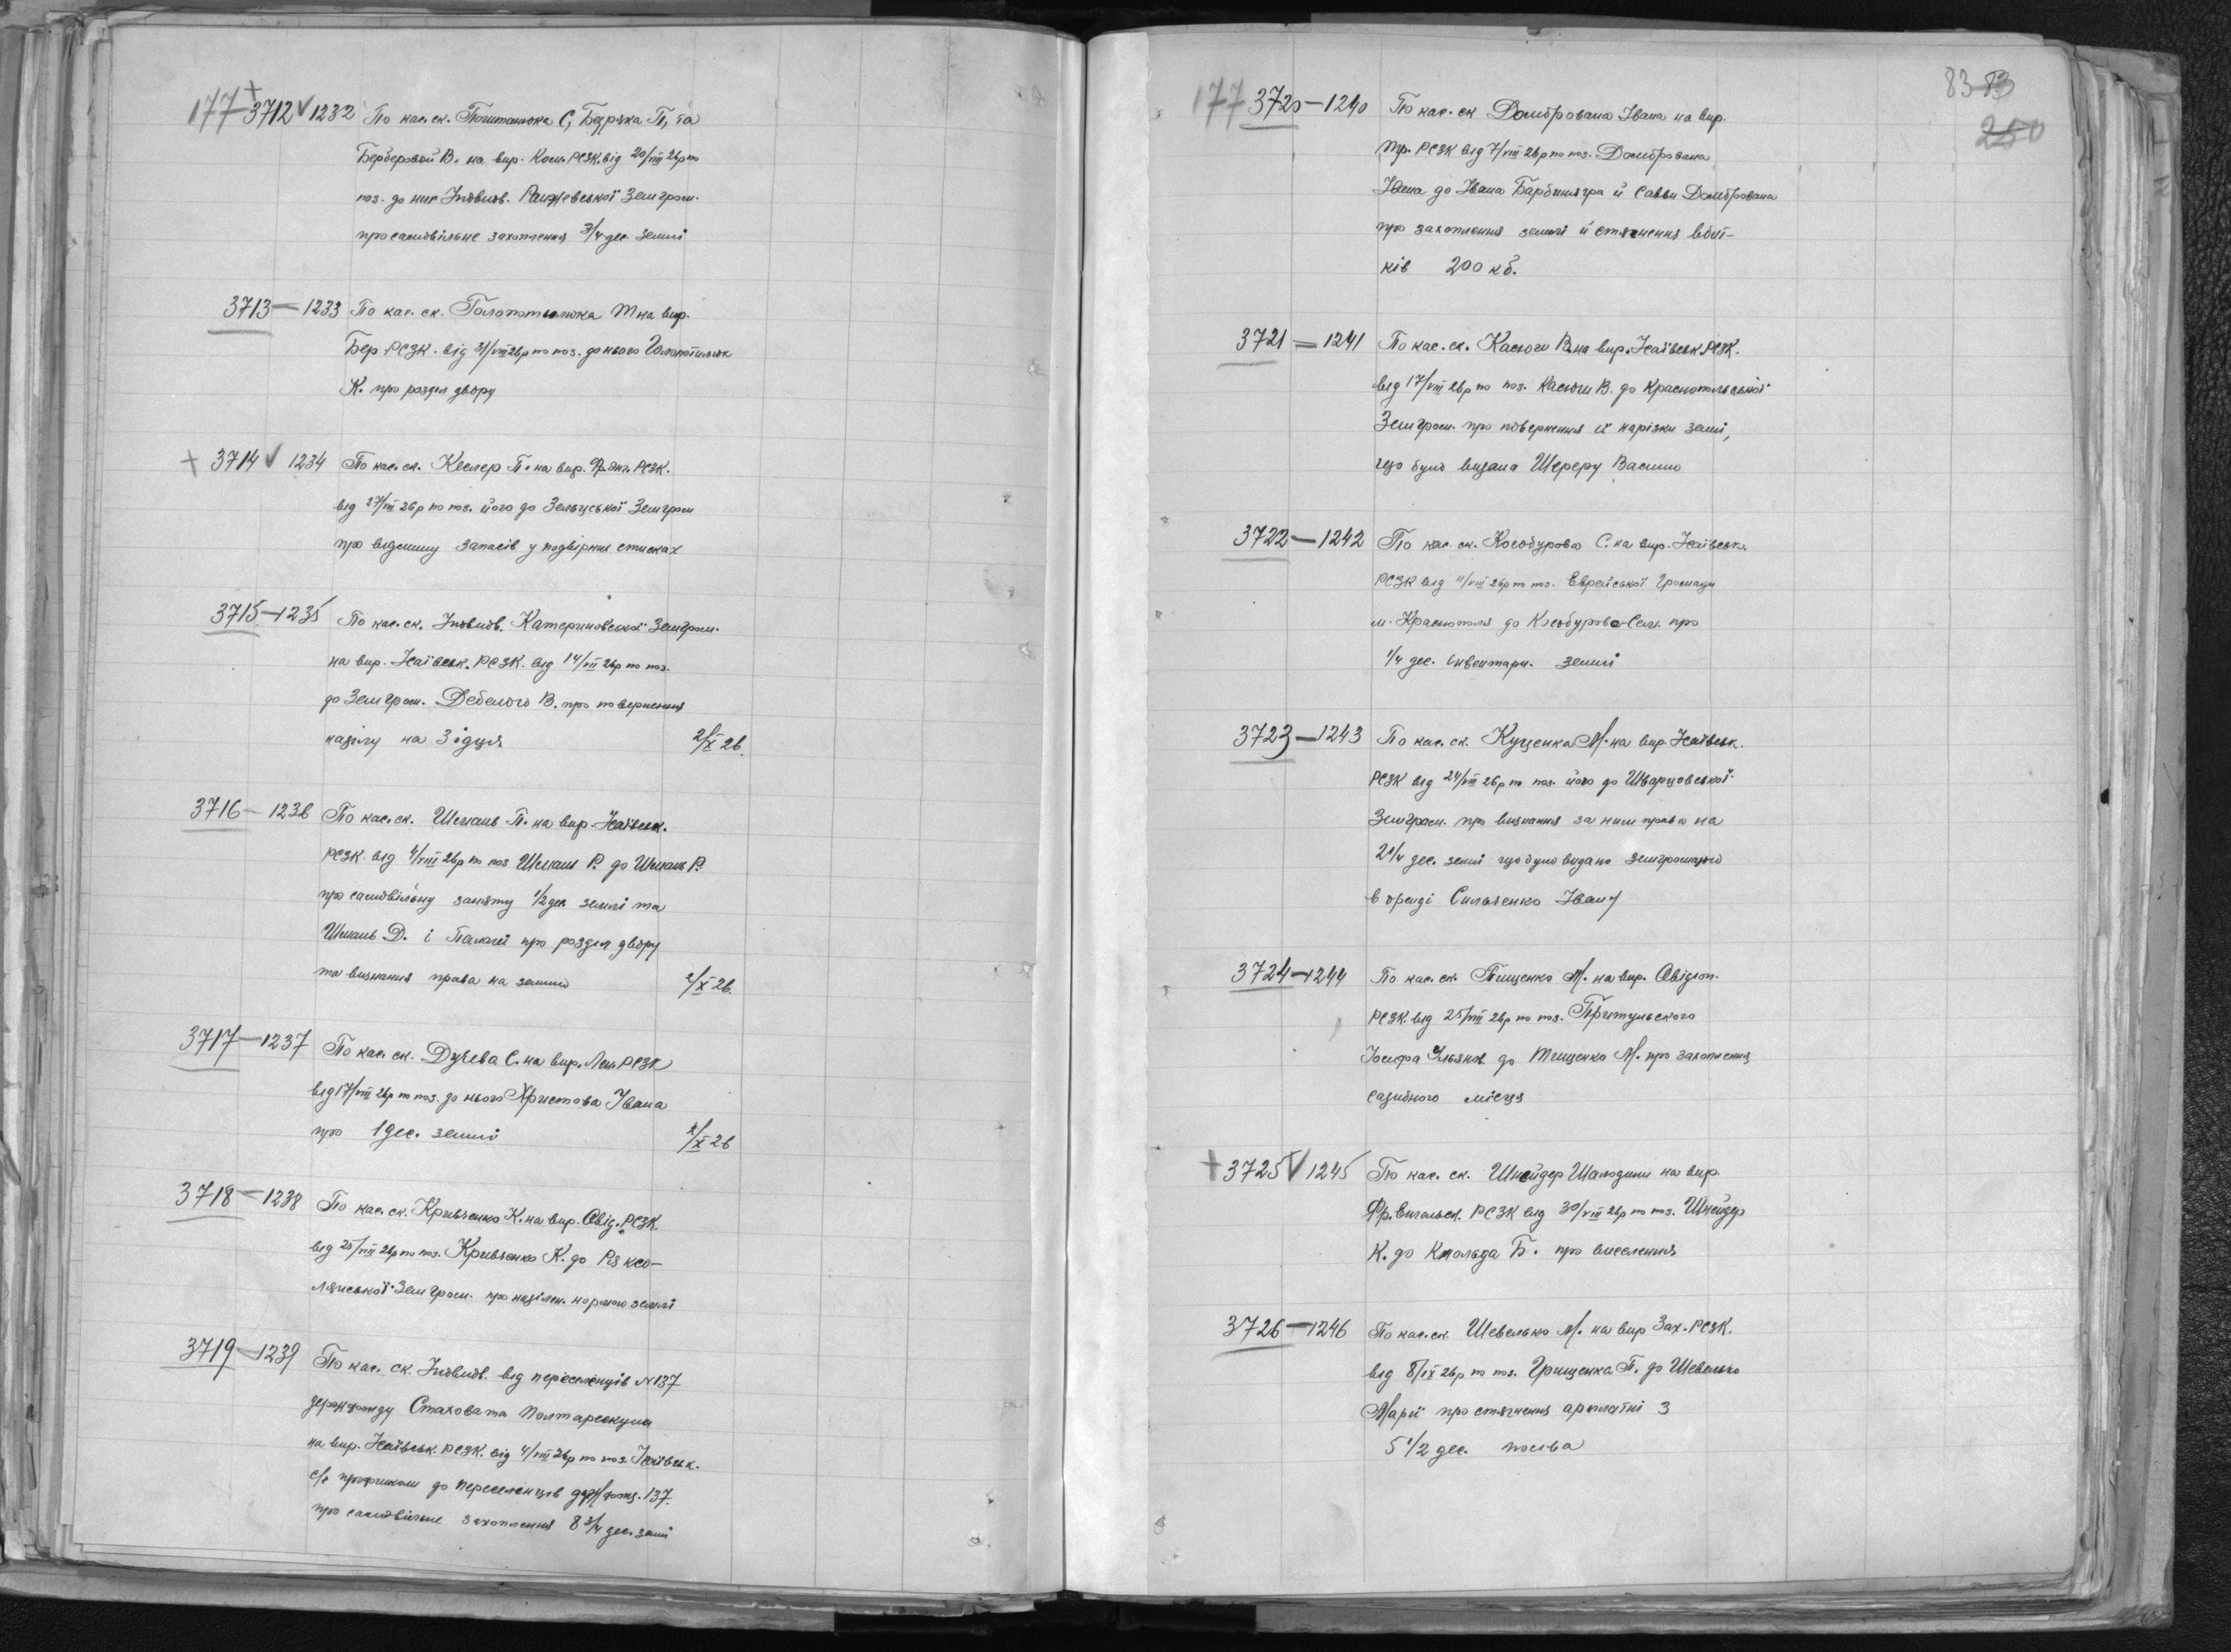 177 + 3712 V 1232 По кас. ск. С, Бедряка П, та
Берберовой В. на вир. Ком. РСЗК. від 20/VIII 26р по
поз. до них Індивідв. Земгром.
про самовільне захоплення 3/4 дес. землі
3713 — 1233 По кас. ск. Голопотилюка Т на вир.
Бер. РСЗК. від 31/VIII 26р по поз. до нього
К. про розділ двору
+ 3714 V 1234 По кас. ск. Кеслер П. на вир. Фр. Енг. РСЗК.
від 27/VIII 26р по поз. його до Зельцської Земгром
про видлишу запасів у подвірних списках
3715 — 1235 По кас. ск. Індивідв. Катериновської Земгром.
на вир. Жаївськ. РСЗК. від 14/VII 26р по поз.
до Земгром. Дебелого В. про повернення
наділу на 3 їдця 2/X 26.
3716 — 1236 По кас. ск. Шмаль П. на вир. Жаївськ.
РСЗК. від 4/VIII 26р по поз Шмаль Р. до Шмаль Р.
про самовільну заняту 1/2 дес. землі та
Шмаль Д. і Палагеї про розділ двору
та визнання права на землю 2/X 26.
3717 — 1237 По кас. ск. Дучева С. на вир. Лен. РСЗК
від 17/VIII 26р по поз. до нього Христова Івана
про 1 дес. землі 2/X 26
3718 — 1238 По кас. ск. Кривченко К. на вир. Овід. РСЗК.
від 25/VIII 26р по поз. Кривченко К. до Ряксо-
лянської Земгром. про наділен. нормою землі
3719 — 1239 По кас. ск. Індивідв. від переселенців N 137
держфонду Стахова та
на вир. Жаївськ. РСЗК. від 4/VIII 26р по поз. Жаївськ.
с/г профшколи до переселенців держфонд. 137.
про самовільне захоплення 8 3/4 дес. землі
83 83
250
177 3720 — 1240 По кас. ск Домбрована Івана на вир.
РСЗК від 7/VIII 26р по поз. Домбрована
Івана до Івана Барбинягра й Савви Домбрована
про захоплення землі й стягнення вбит-
ків 200 кб.
3721 — 1241 По кас. ск. Касюги В. на вир. Жаївськ РСЗК.
від 17/VIII 26р по поз. Касюги В. до Краснопольської
Земгром. про повернення й нарізки землі,
що було видана Шереру Василю
3722 — 1242 По кас. ск. Кособурова С. на вир. Жаївськ.
РСЗК від 11/VIII 26р по поз. Еврейської Громади
м. Краснополя до Кособурова Сем. про
1/4 дес. інвентарн. землі
3723 — 1243 По кас. ск. Куценка М. на вир. Жаївськ.
РСЗК від 24/VIII 26р по поз. його до Шварцовської
Земгром. про визнання за ним права на
2 1/4 дес. землі що було видано земгромадою
в оренді Сильченко Івану
3724 — 1244 По кас. ск. Тищенко М. на вир. Овідіоп.
РСЗК. від 25/VIII 26р по поз. Притульского
Іосифа Ульянов. до Тищенко М. про захоплення
садибного місця
+ 3725 V 1245 По кас. ск. Шнейдер на вир
Фр. Енгельск. РСЗК від 30/VIII 26р по поз. Шнейдер
К. до Кнольда Б. про виселення
3726 — 1246 По кас. ск. Шевелько М. на вир Зах. РСЗК.
від 8/IX 26р по поз. Грищенка Т. до Шевелько
Марії про стягнення 3
5 1/2 дес. посіва